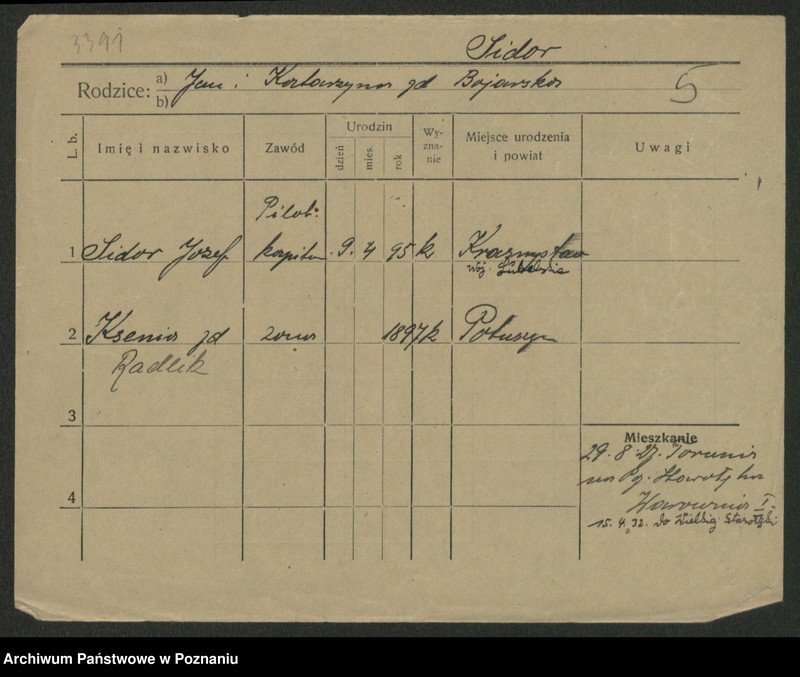 3391
Sidor
Rodzice: a) Jan i Katarzyna zd Bojarska
b)
5
L. b.
Imię i nazwisko
Zawód
Urodzin
dzień
mies.
rok
Wy-
zna-
nie
Miejsce urodzenia
i powiat
Uwagi
Pilot
1 Sidor Józef kapitan 9. 4 95 k Krasnystaw
woj. Lubelskie
2 Ksenia zd żona 1897 k
Radlik
3
4
Mieszkanie
29. 8. 27. Torunia
na
Warownia I.
15. 4. 32. do Starołęki
Archiwum Państwowe w Poznaniu